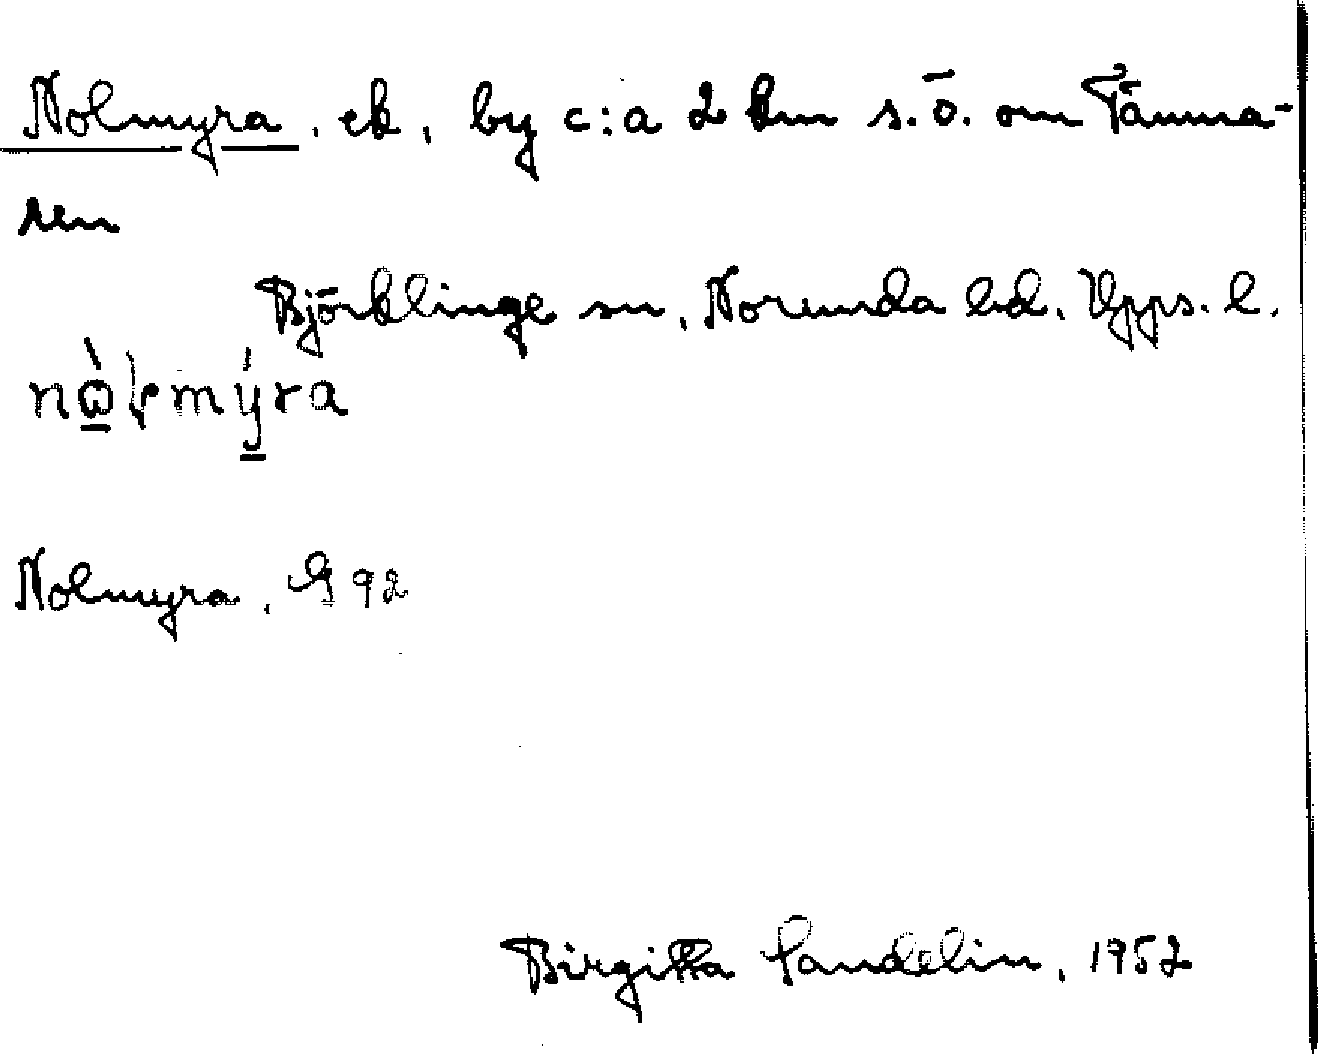 Nolmyra, ek, by c:a 2 km s.ö. om Tämna-
ren
Björklinge sn, Norunda hd. Upps. l.
Nolmyra, G 92
Birgitta Sandelin, 1952